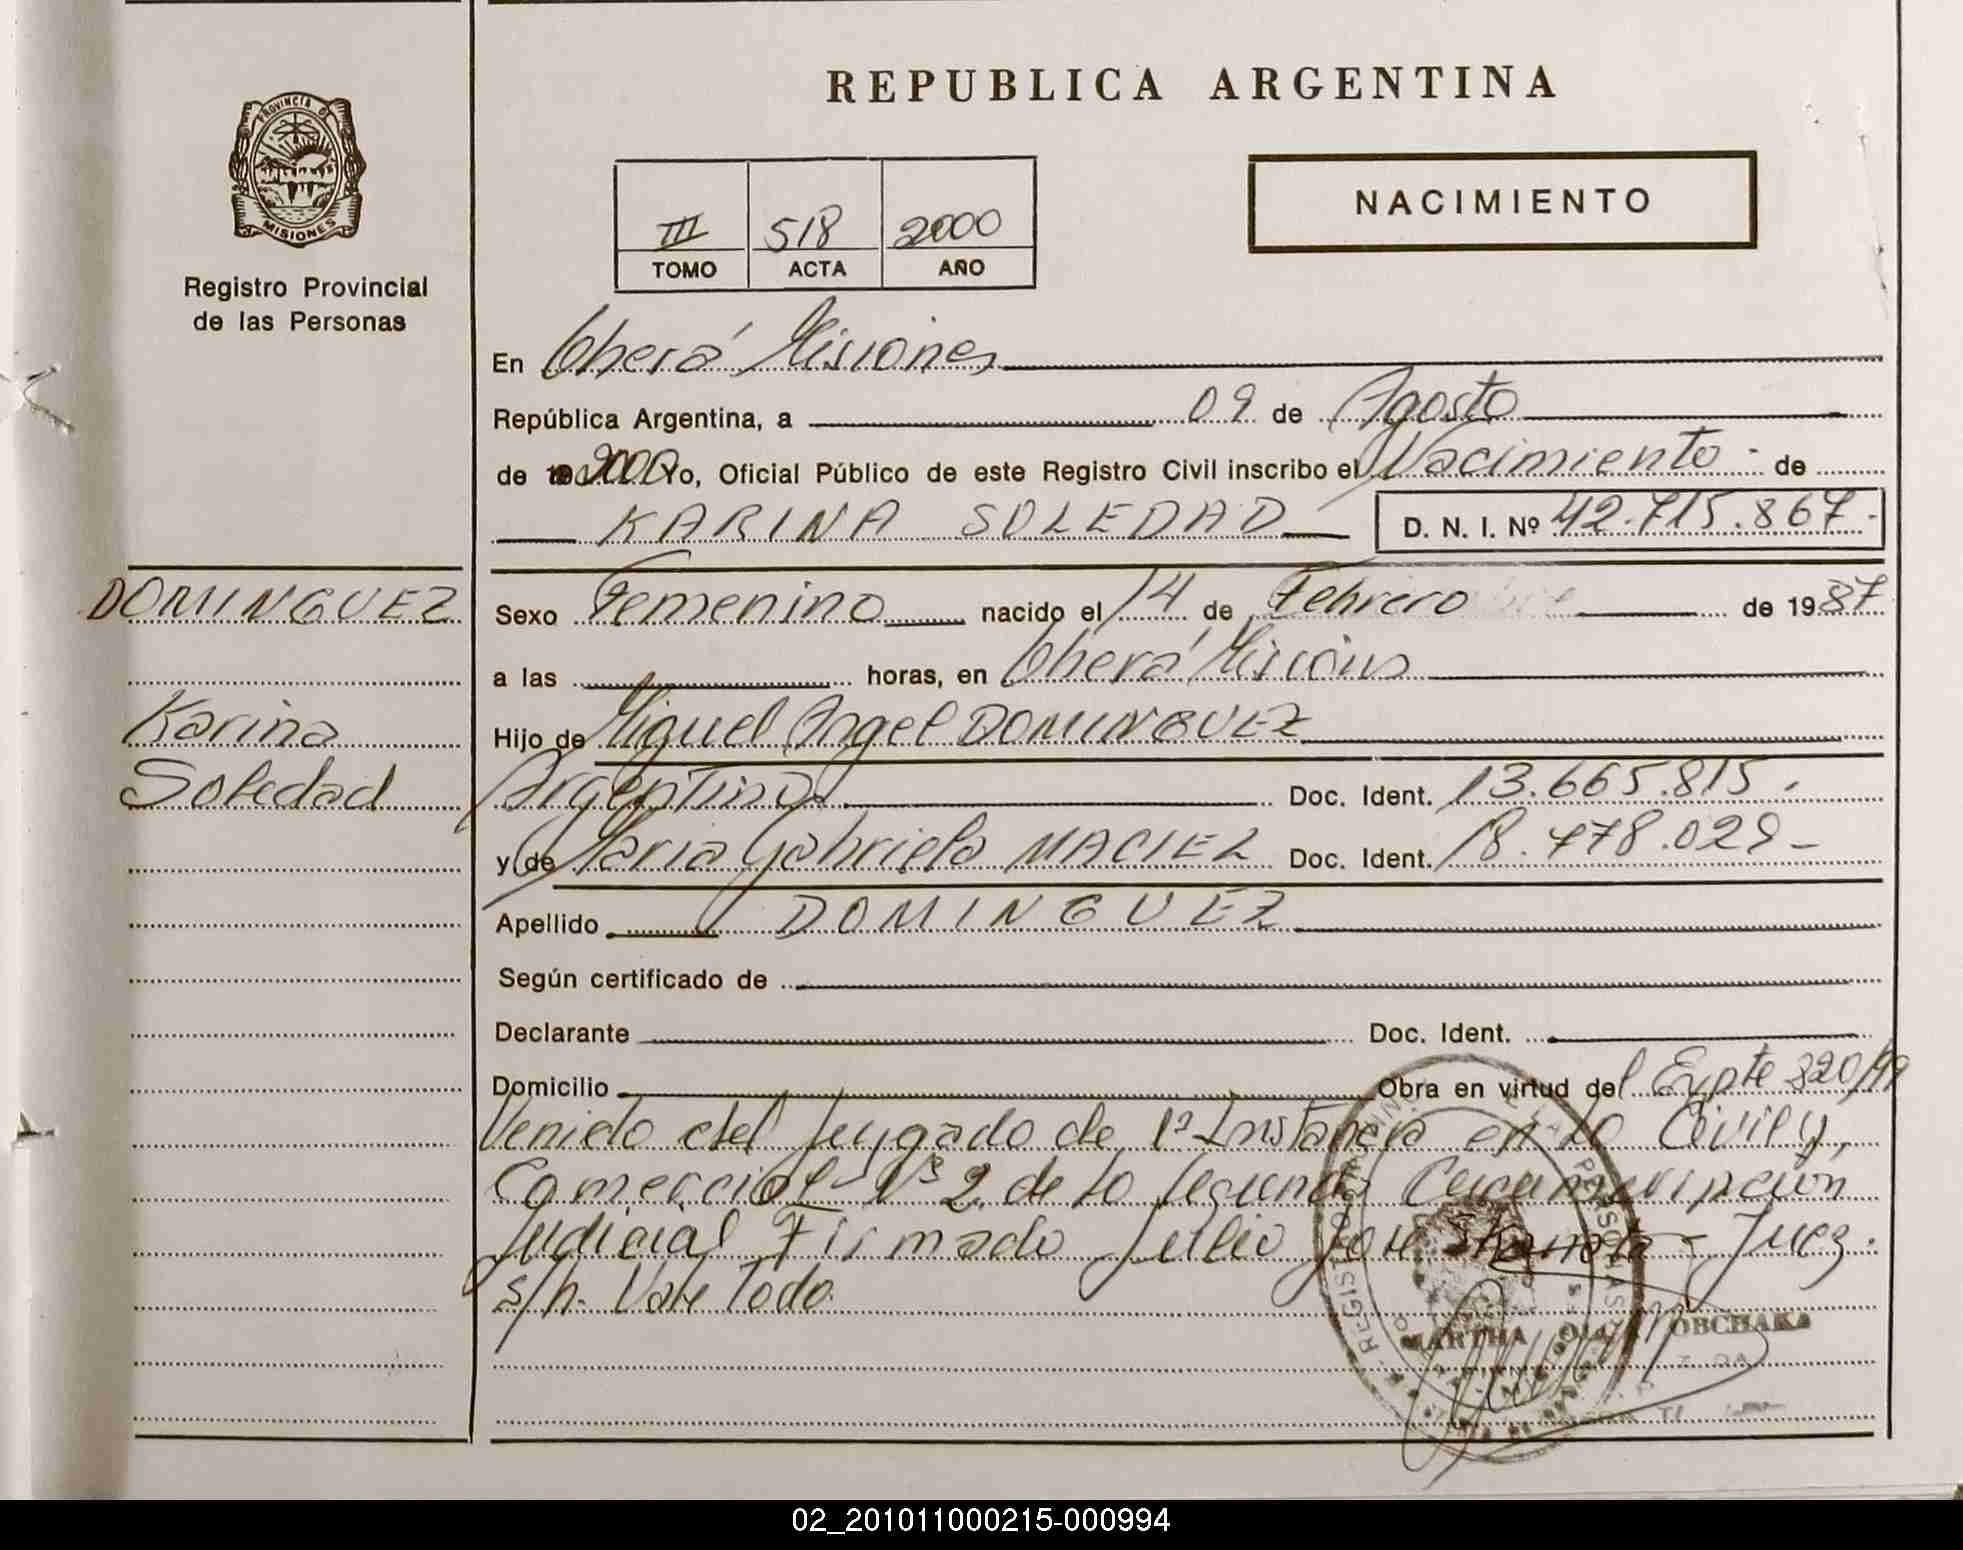 REPUBLICA ARGENTINA
PROVINCIA D
MISIONES
Registro Provincial
de las Personas
III 518 2000
TOMO ACTA AÑO
NACIMIENTO
En Oberá Misiones
República Argentina, a 09 de Agosto
de 2000 Yo, Oficial Público de este Registro Civil inscribo el Nacimiento - de
KARINA SOLEDAD D. N. I. Nº 42.715.867.-
DOMINGUEZ
Karina
Soledad
Sexo Femenino nacido el 14 de Febrero de 1987
a las horas, en Oberá Misiones
Hijo de Miguel Angel DOMINGUEZ
Argentino Doc. Ident. 13.665.815.
y de Maria Gabriela MACIEL Doc. Ident. 18.478.029-
Apellido DOMINGUEZ
Según certificado de
Declarante Doc. Ident.
Domicilio Obra en virtud del Expte 320/99
Venido del Juzgado de 1ª Instancia en lo Civil y
Comercial Nº 2 de la Segunda Circunscripción
Judicial Firmado Julio José - Juez.
s/r. Vale Todo.
MARTHA OBCHAKA
02_201011000215-000994